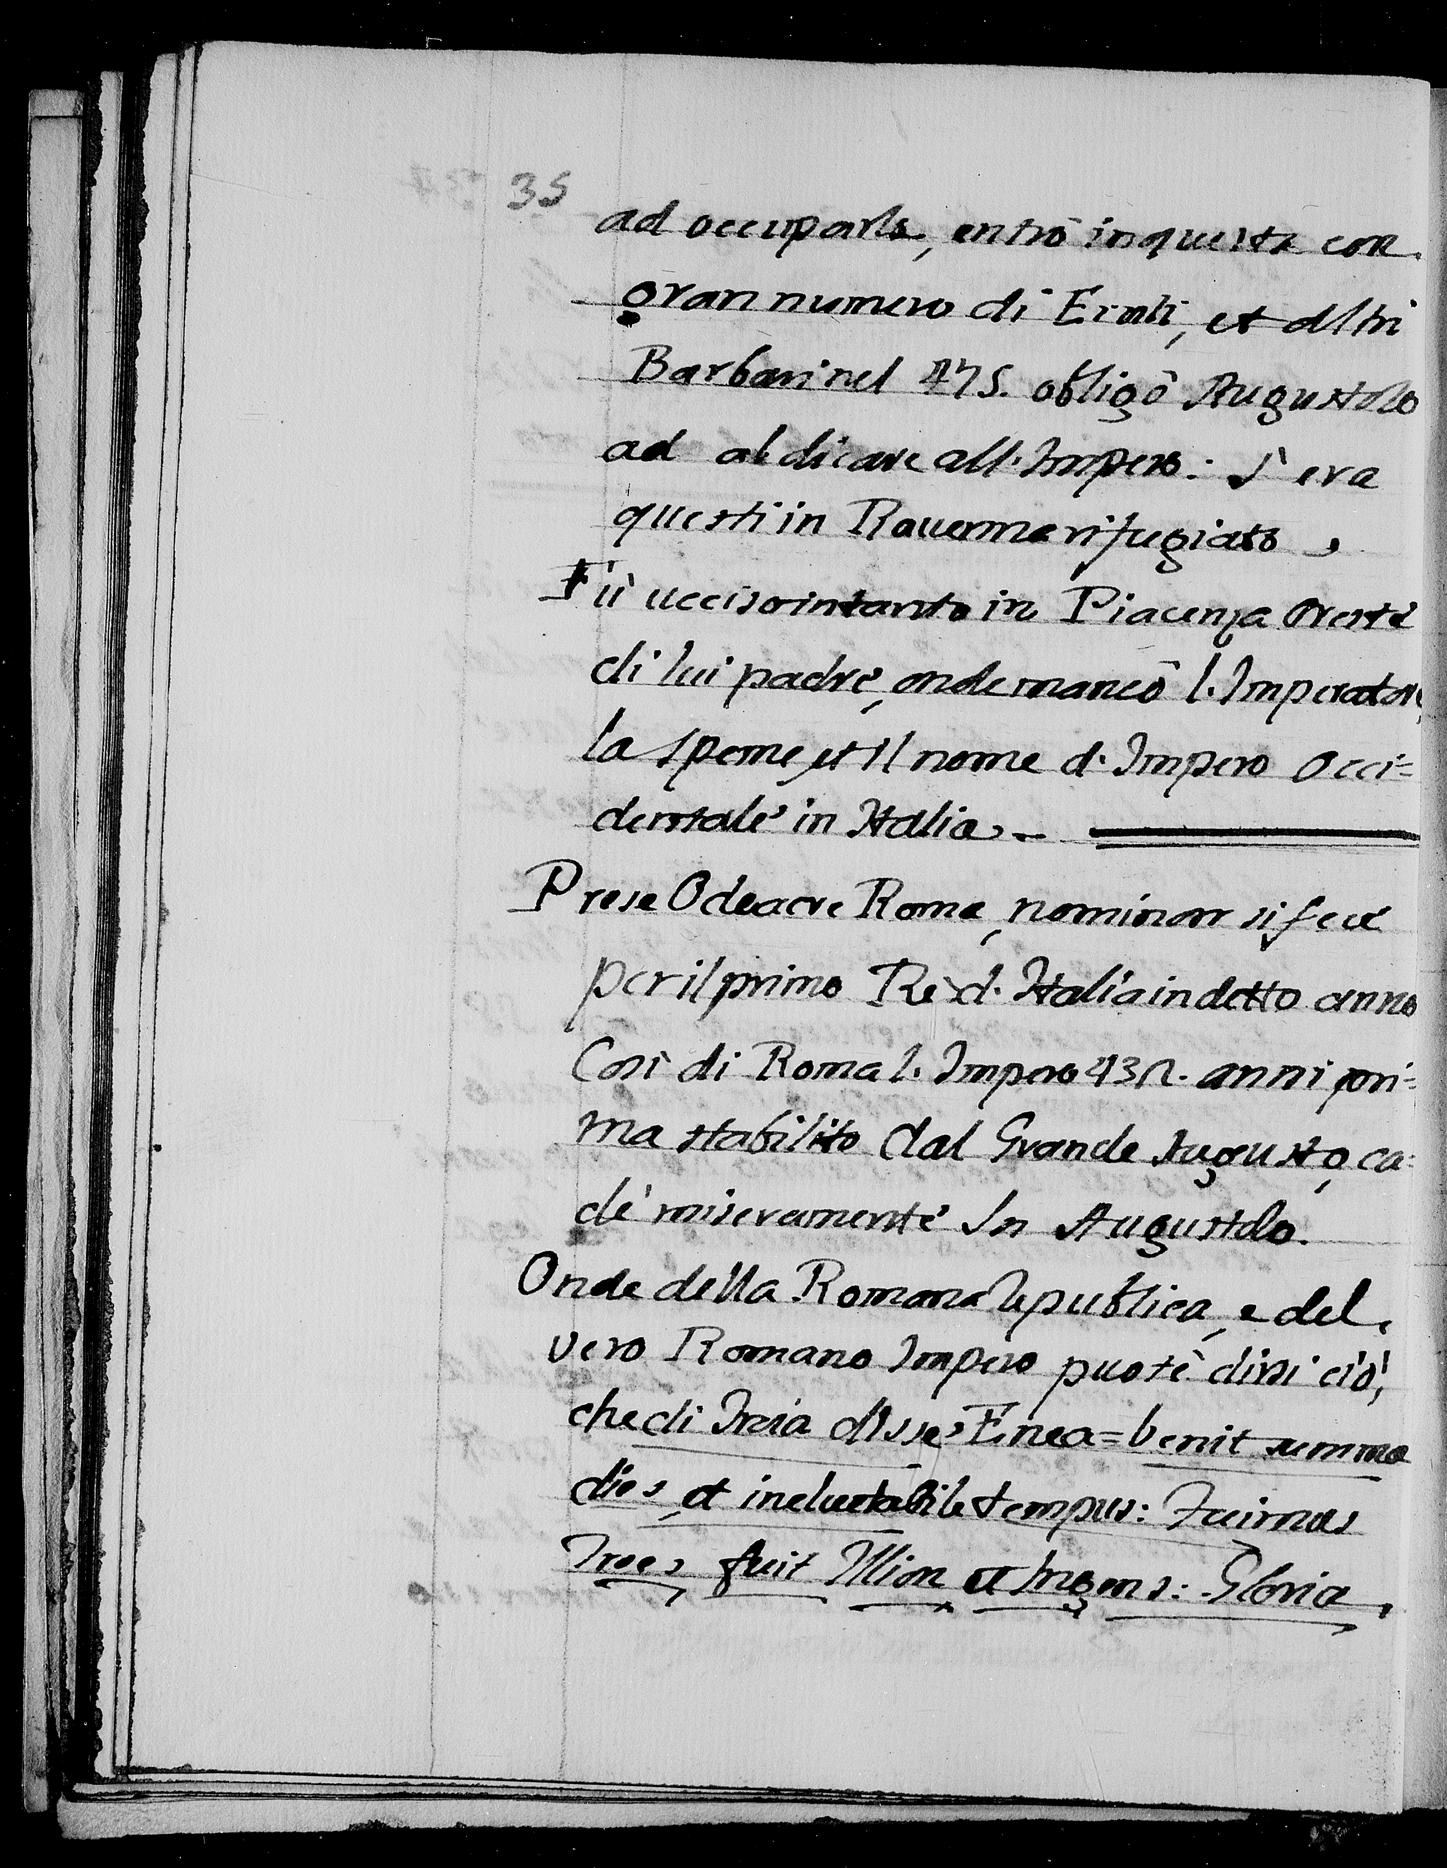 35
ad occuparla, entrò in questa con
gran numero di Eruli, et altri
Barbari nel 475. obligò Augustolo
ad abdicare all'Impero: s'era
questi in Rauenna rifugiato,
Fù ucciso intanto in Piacenza Oreste
di lui padre, onde mancò l'Imperatore,
la speme, et il nome d'Impero Occi=
dentale in Italia.
Prese Odeacre Roma, nominar si fece
per il primo Rè d'Italia in detto anno
Così di Roma l'Impero anni pri=
ma stabilito dal Grande Augusto, ca=
dè miseramente In Augustolo.
Onde della Romana Republica, e del
vero Romano Impero puote dirsi ciò,
che di Troia disse Enea = Venit summa
dies, et ineluctabile tempus: Fuimus
Troes, fuit Illion et Ingens: Gloria,